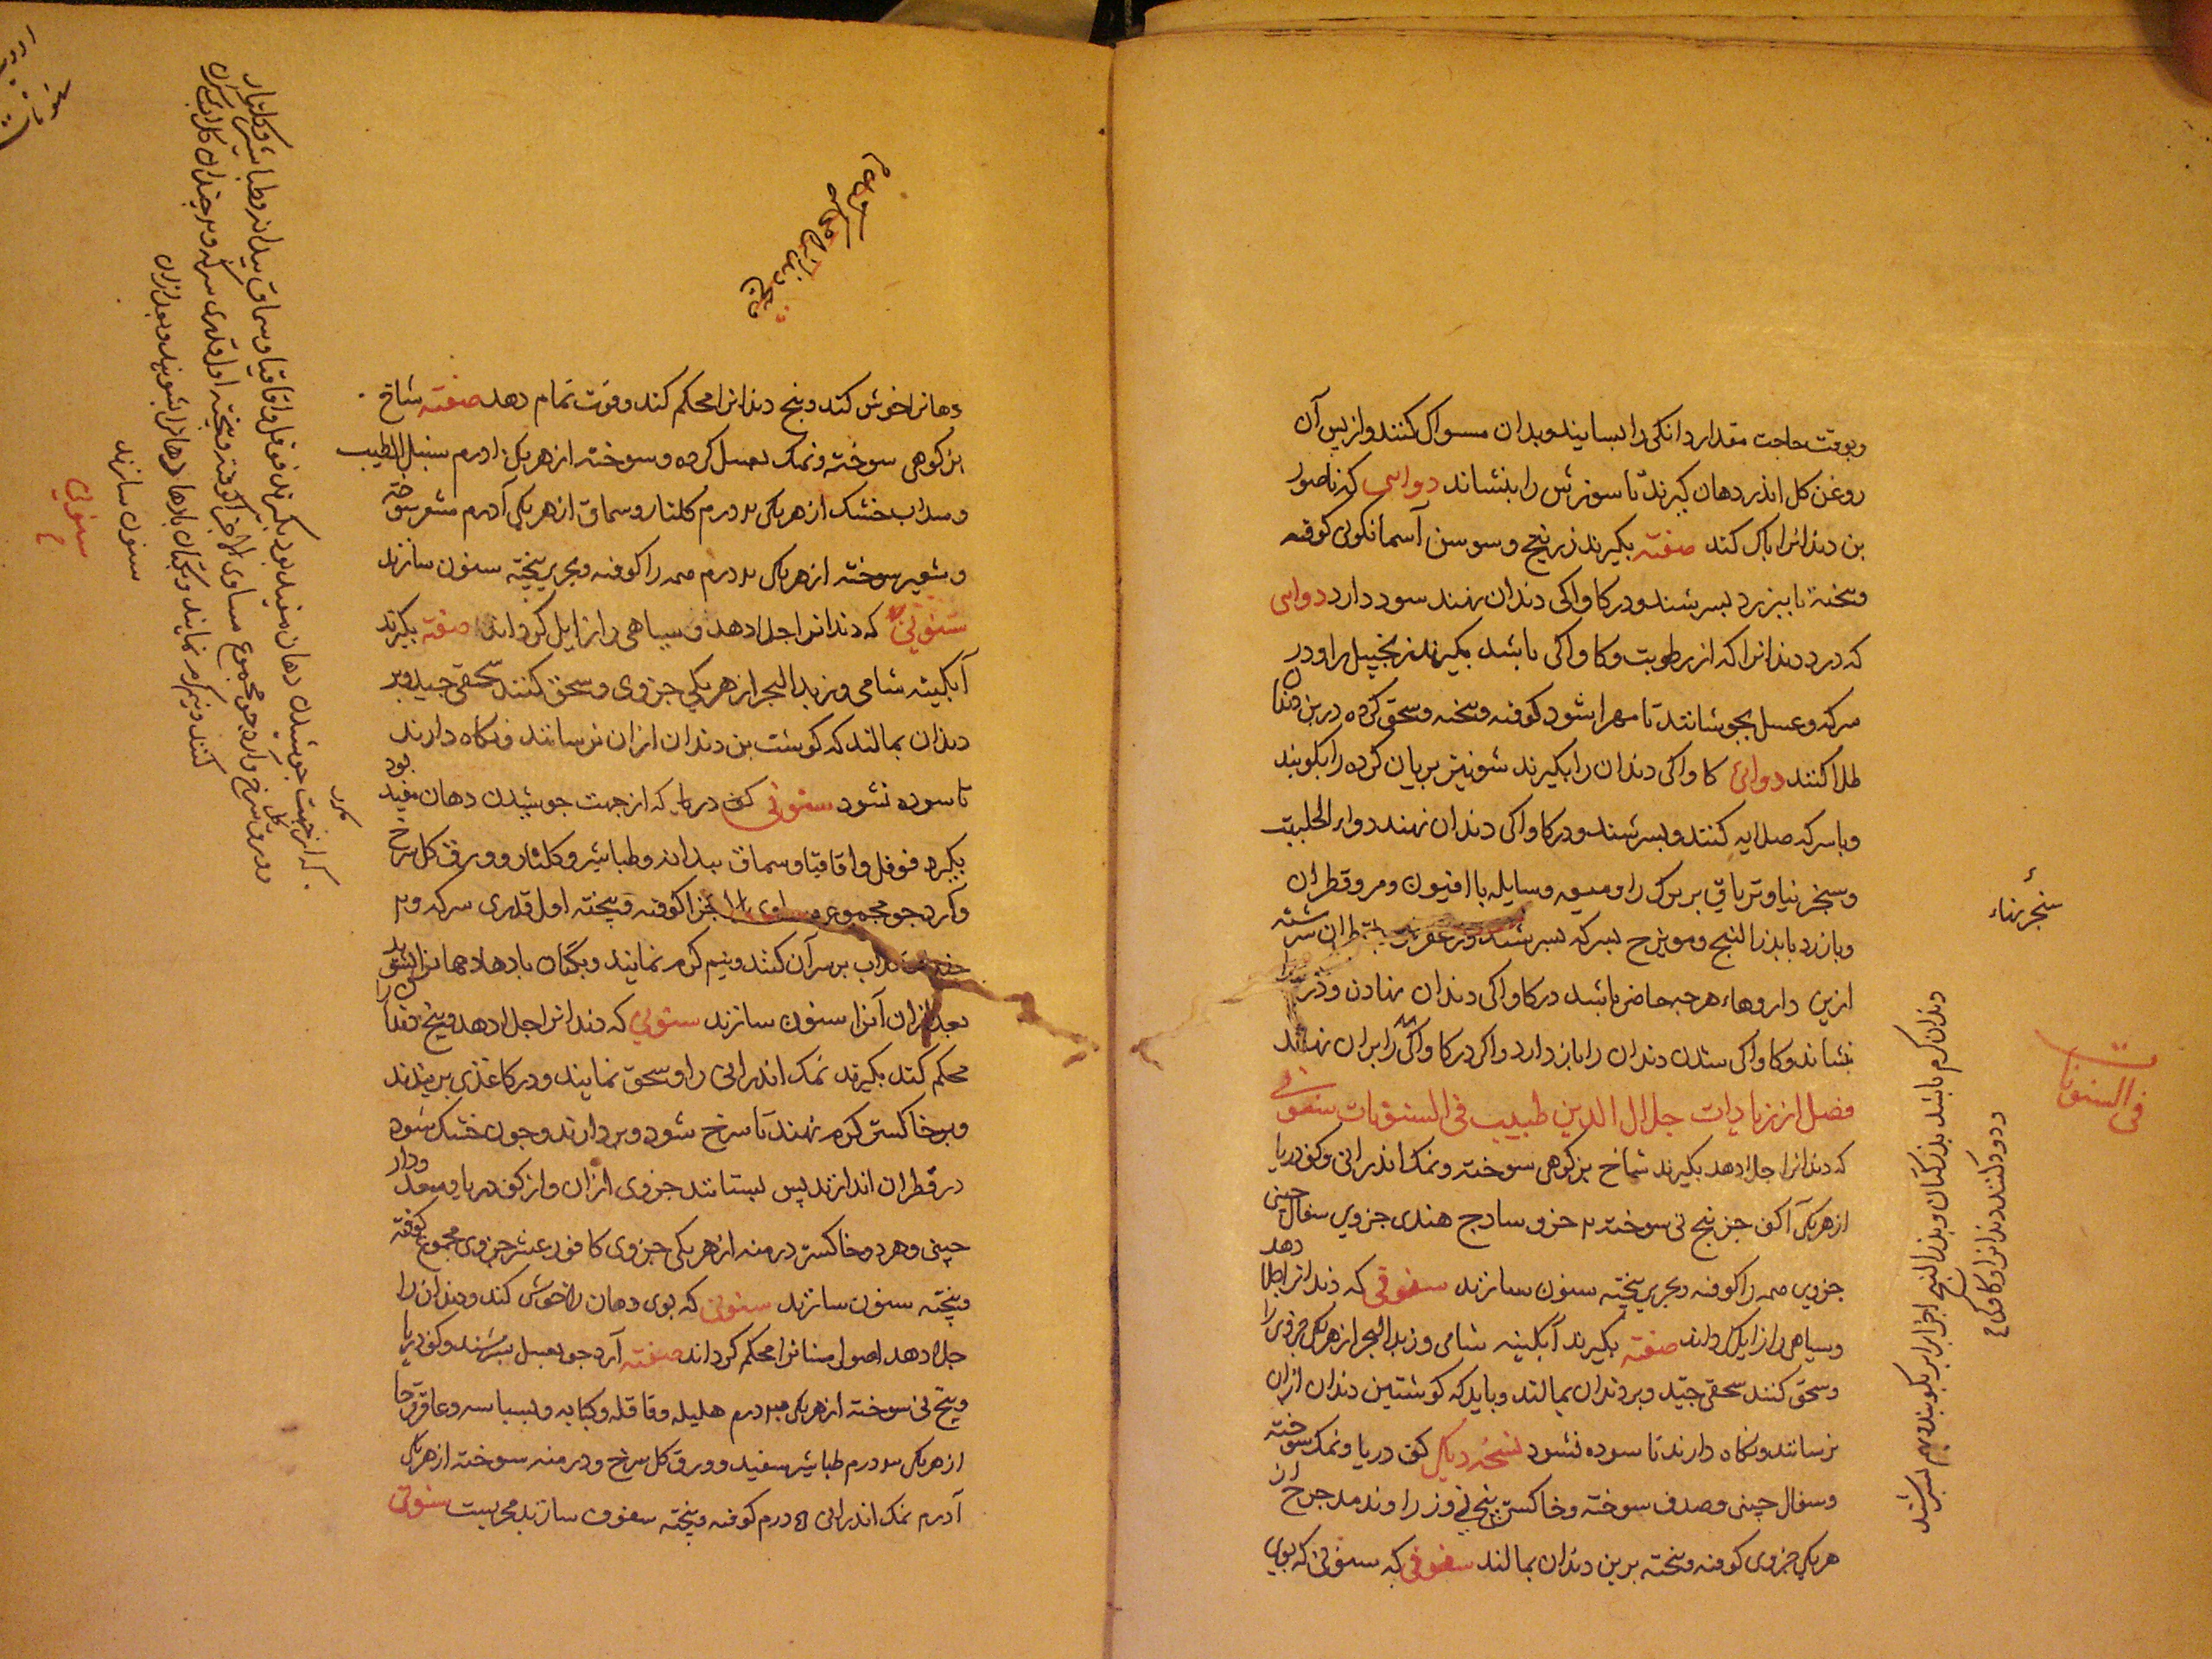 وبوقت حاجت مقدار دانکی را بسایند وبدان مسواک کنند واز پس آن
روغن کل اندر دهان کیرند تا سوزش را بنشاند دوایی که ناصور
بن دندانرا پاک کند صفته بکیرند زرنیخ وسوسن آسمانکونی کوفته
وبیخته با بیزرد بسرشند ودر کاواکی دندان نهند سود دارد دوایی
که درد دندانرا که از رطوبت وکاواکی باشد بکیرند زنجبیل را ودر
سرکه وعسل بجوشانند تا مهرا شود کوفته وبیخته وسحق کرده در بن دندان
طلا کنند دوائی کاواکی دندان را بکیرند شونیز بریان کرده را بکوبند
وبا سرکه صلایه کنند وبسرشند ودر کاواکی دندان نهند دواء الحلتیت
وسنجرنیا وتریاق بزرک را ومیعه وسایله با افیون ومر وقطران
وبارزد با بذر البنج ومویزج بسرکه بسرشند وعقرب بقطران سرشته
ازین داروها هرچه حاضر باشد در کاواکی دندان نهادن ودرد را
بنشاند وکاواکی شدن دندان را باز دارد واکر در کاواکی را بران نهند
فصل از زیادات جلال الدین طبیب فی السنونات سنونی
که دندانرا جلا دهد بکیرند شاخ بزکوهی سوخته ونمک اندرانی وکف دریا
از هریکی ا کف جز بیخ نی سوخته ۲ جزو سادج هندی جزوی سفال چینی
جزوی همه را کوفته وبحریر بیخته سنون سازند سفوفی که دندانرا جلا دهد
وسیاهی را زایل کرداند صفته بکیرند آبکینه شامی وزبد البحر از هریکی جزوی را
وسحق کنند سحقی جید وبر دندان بمالند وباید که کوشت بن دندان ازان
نرسانند ونکاه دارند تا سوده نشود نسخه دیکر کف دریا ونمک سوخته
وسفال چینی وصدف سوخته وخاکستر بیخ نی وزراوند مدحرج از
هریکی جزوی کوفته وبیخته بر بن دندان بمالند سفوفی که سنونی که بوی
سنجرنیاء
فی السنونات
دندان کرم باشد بذر کتان وبذر البنج اجزا برابر بکوبند وبهم بسرشند
ودود کنند دندانرا وکام
دهانرا خوش کند وبیخ دندانرا محکم کند وقوت تمام دهد صفته شاخ
بز کوهی سوخته ونمک بعسل کرده وسوخته از هریک ۱۰ درم سنبل الطیب
وسداب خشک از هریکی درم کلنار وسماق از هریکی آ درم
وشعیر سوخته از هریکی درم همه را کوفته وبحریر بیخته سنون سازند
سنونی که دندانرا جلا دهد وسیاهی را زایل کرداند صفته بکیرند
آبکینه شامی وزبد البحر از هریکی جزوی وسحق کنند سحقی جید وبر
دندان بمالند که کوشت بن دندان ازان نرسانند ونکاه دارند
تا سوده نشود سنونی کف دریا که از جهت جوشیدن دهان مفید بود
بکیرد فوفل واقاقیا وسماق بیدانه وطباشیر وکلنار وورق کل سرخ
وآرد جو مجموع مساوی الاجزا کوفته وبیخته اول قدری سرکه و۲
چندان کلاب بر سر آن کنند ونیم کرم نمایند وبکتان بارها دهانرا بشویند
بعد ازان آنرا سنون سازند سنونی که دندانرا جلا دهد وبیخ دندان را
محکم کند بکیرند نمک اندرانی را وسحق نمایند ودر کاغذی بر بندند
وبر خاکستر کرم نهند تا سرخ شود وبردارند وچون خشک شود
در قطران اندازند پس بستانند جزوی ازان واز کف دریا وسعد ودار
چینی ومرد وخاکستر درمنه از هریکی جزوی کافور عشر جزوی مجموع کوفته
وبیخته سنون سازند سنونی که بوی دهان را خوش کند ودندان را
جلا دهد اصول اسنانرا محکم کرداند صفته آرد جو بعسل بسرشند وکف دریا
وبیخ نی سوخته از هریکی درم هلیله وقاقله وکبابه وبسباسه وعاقرقرحا
از هریکی درم طباشیر سفید وورق کل سرخ ودرمنه سوخته از هریکی
آ درم نمک اندرانی ۵ درم کوفته وبیخته سفوف سازند مجربست سنونی
که از جهت جوشیدن دهان مفید بود بکیرند فوفل واقاقیا وسماق بیدانه وطباشیر وکلنار
وورق کل سرخ وآرد جو مجموع مساوی الاجزا کوفته وبیخته اول قدری سرکه ودو چندان کلاب بر سر آن
کنند ونیم کرم نمایند وبکتان بارها دهانرا بشویند وبعد ازان
سنون سازند
سنونی
مکرر